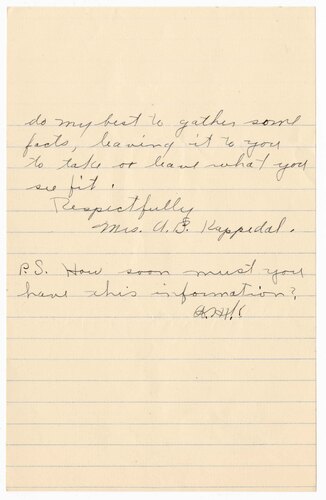 do my best to gather some
facts, leaving it to you
to take or leave what you
see fit.
Respectfully
Mrs. A. B. Kappedal.
P.S. How soon must you
have this information?